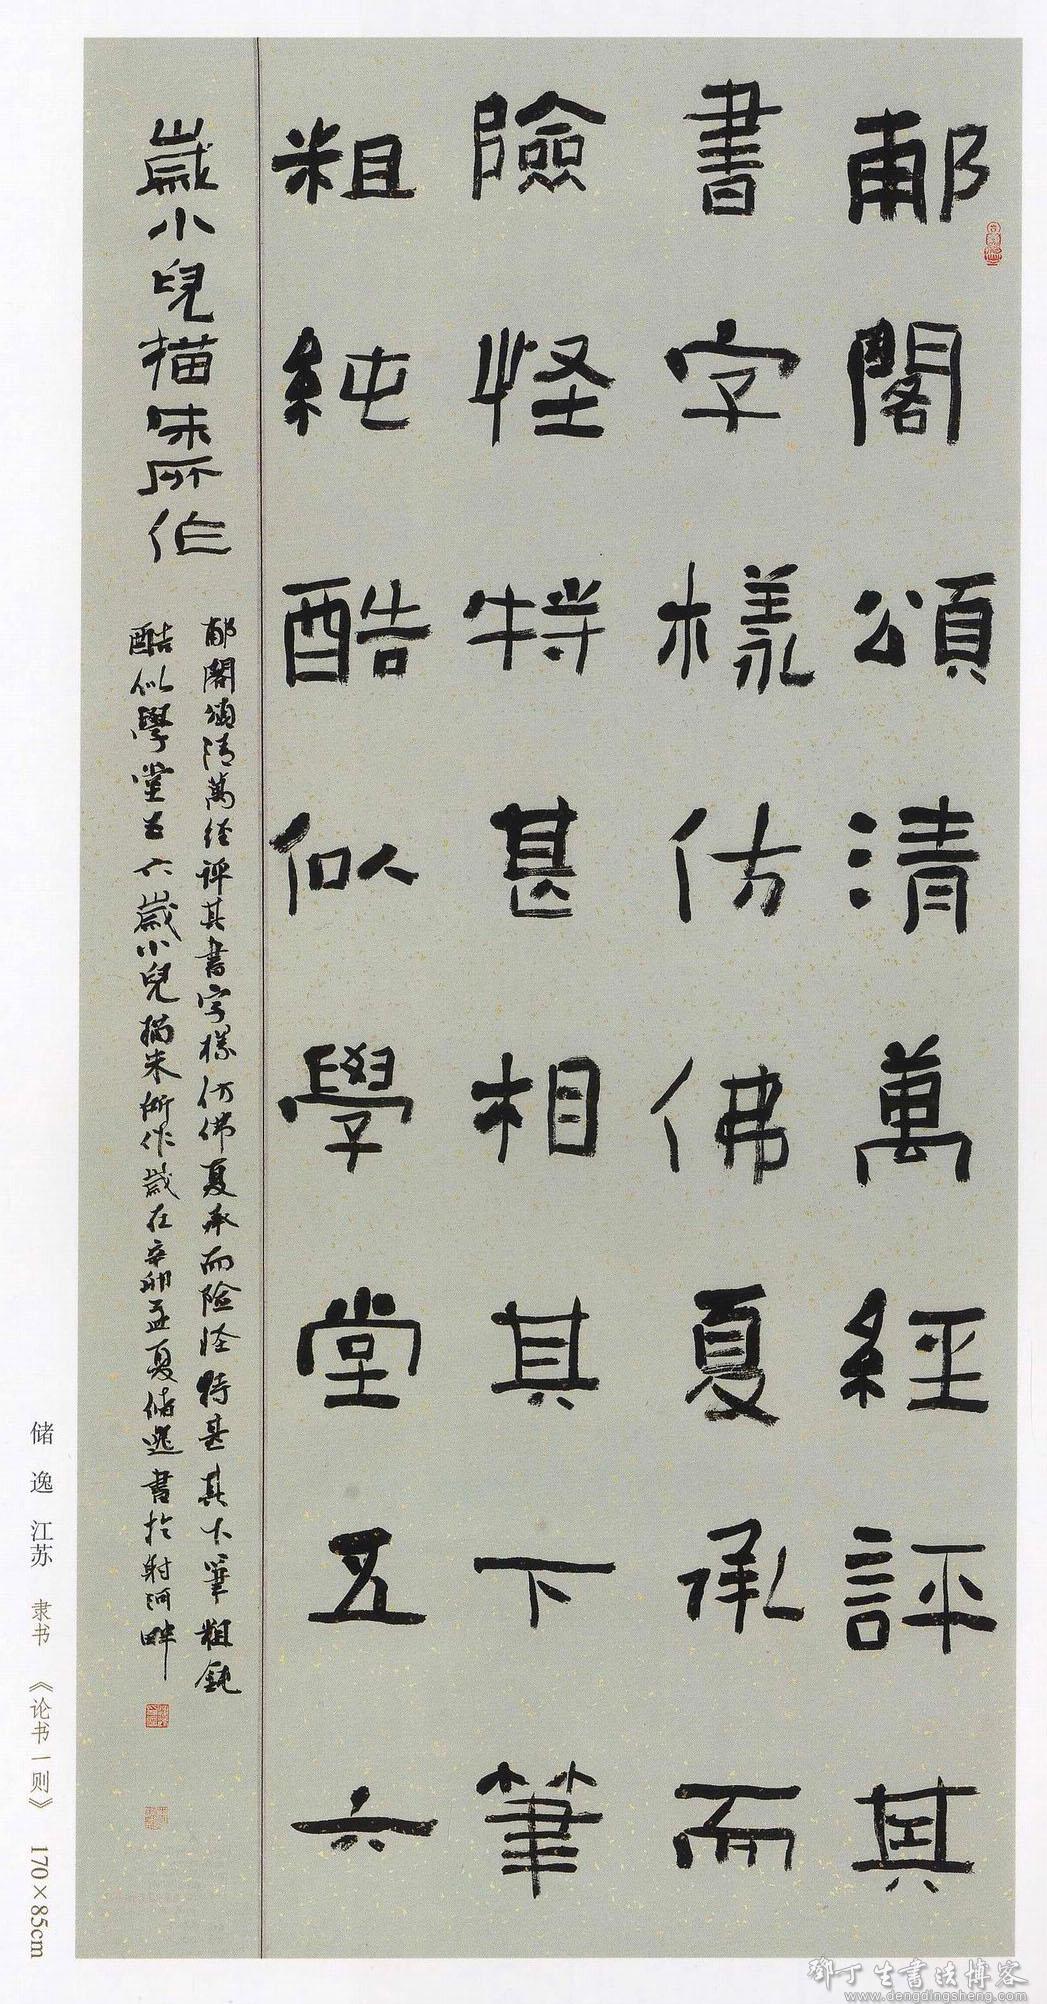 郙閣頌清萬經評其
書字樣仿佛夏承而
險怪特甚相其下筆
粗純酷似學堂五六
歲小兒描朱所作
郙閣頌清萬经评其書字樣仿佛夏承而險怪特甚其下筆粗鈍
酷似學堂五六歲小兒描朱所作歲在辛卯孟夏储逸書於射河畔
储逸 江苏 隶书 《论书一则》 170×85cm
鄧丁生書法博客
www.dengdingsheng.com